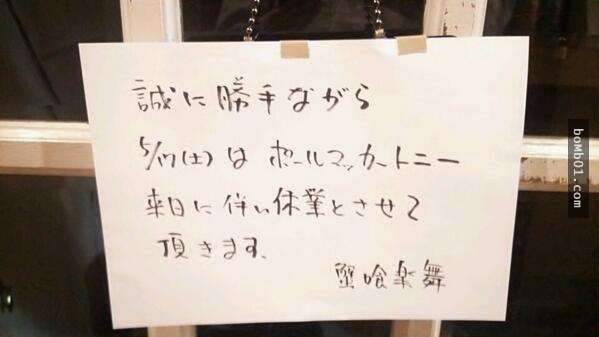 誠に勝手ながら
5/17(土)は ポールマッカートニー
来日に伴い休業とさせて
頂きます。
蟹喰楽舞
bomb01.com